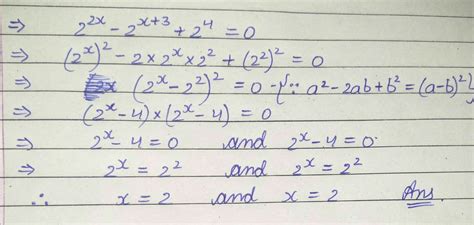 ⇒ 2^{2x} - 2^{x+3} + 2^4 = 0
⇒ (2^x)^2 - 2 × 2^x × 2^2 + (2^2)^2 = 0
⇒ (2^x - 2^2)^2 = 0 -{∵ a^2 - 2ab + b^2 = (a-b)^2}
⇒ (2^x - 4) × (2^x - 4) = 0
⇒ 2^x - 4 = 0 and 2^x - 4 = 0
⇒ 2^x = 2^2 and 2^x = 2^2
∴ x = 2 and x = 2 Ans.